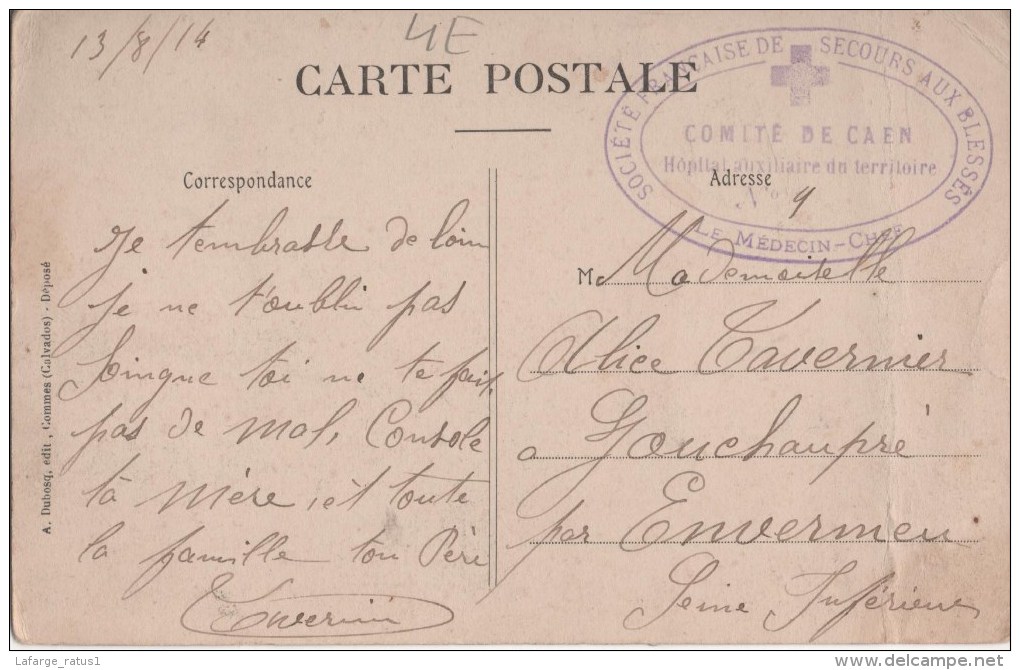 13/8/14
4E
CARTE POSTALE
SOCIÉTÉ FRANÇAISE DE SECOURS AUX BLESSÉS
COMITÉ DE CAEN
Hôpital auxiliaire du territoire
No 9
LE MÉDECIN-CHEF
Correspondance
Adresse
Je tembrable de loin
je ne t'oublin pas
Soingne toi ne te fait
pas de mal, Console
ta mère, et toute
la famille ton Père
M
Mademoiselle
Alice Tavernier
a Gouchaupré
par Envermeu
Seine Inférieure
A. Dubosq, edit, Commes (Calvados) - Déposé
Lafarge_ratus1
delcampe.net